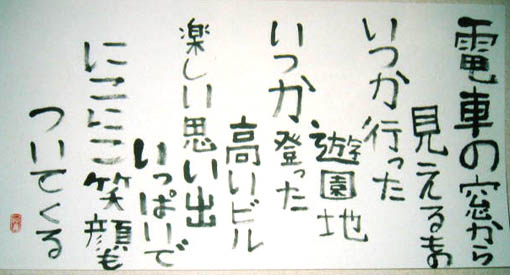 電車の窓から
見えるよ
いつか行った
遊園地
いつか登った
高いビル
楽しい思い出
いっぱいで
にこにこ笑顔も
ついてくる